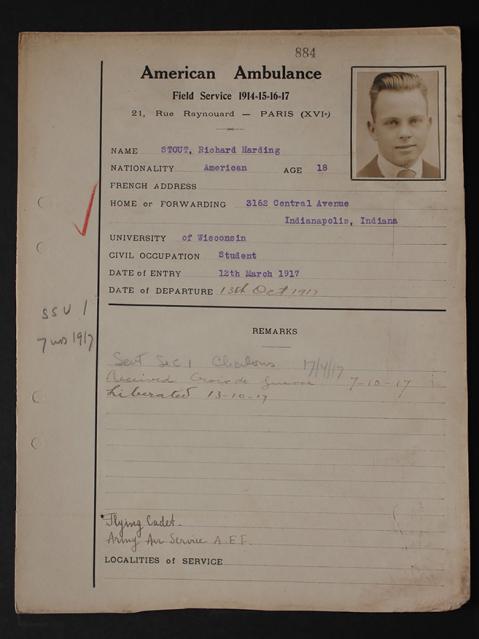 884
American Ambulance
Field Service 1914-15-16-17
21, Rue Raynouard — PARIS (XVIe)
NAME STOUT, Richard Harding
NATIONALITY American AGE 18
FRENCH ADDRESS
HOME or FORWARDING 3162 Central Avenue
Indianapolis, Indiana
UNIVERSITY of Wisconsin
CIVIL OCCUPATION Student
DATE of ENTRY 12th March 1917
DATE of DEPARTURE 13th Oct 1917
SSU 1
7 1917
REMARKS
Sent Sec 1 Chalons 17/4/17
Received Croix de guerre 7-10-17
Liberated 13-10-17
Flying Cadet.
Army Air Service A.E.F.
LOCALITIES of SERVICE